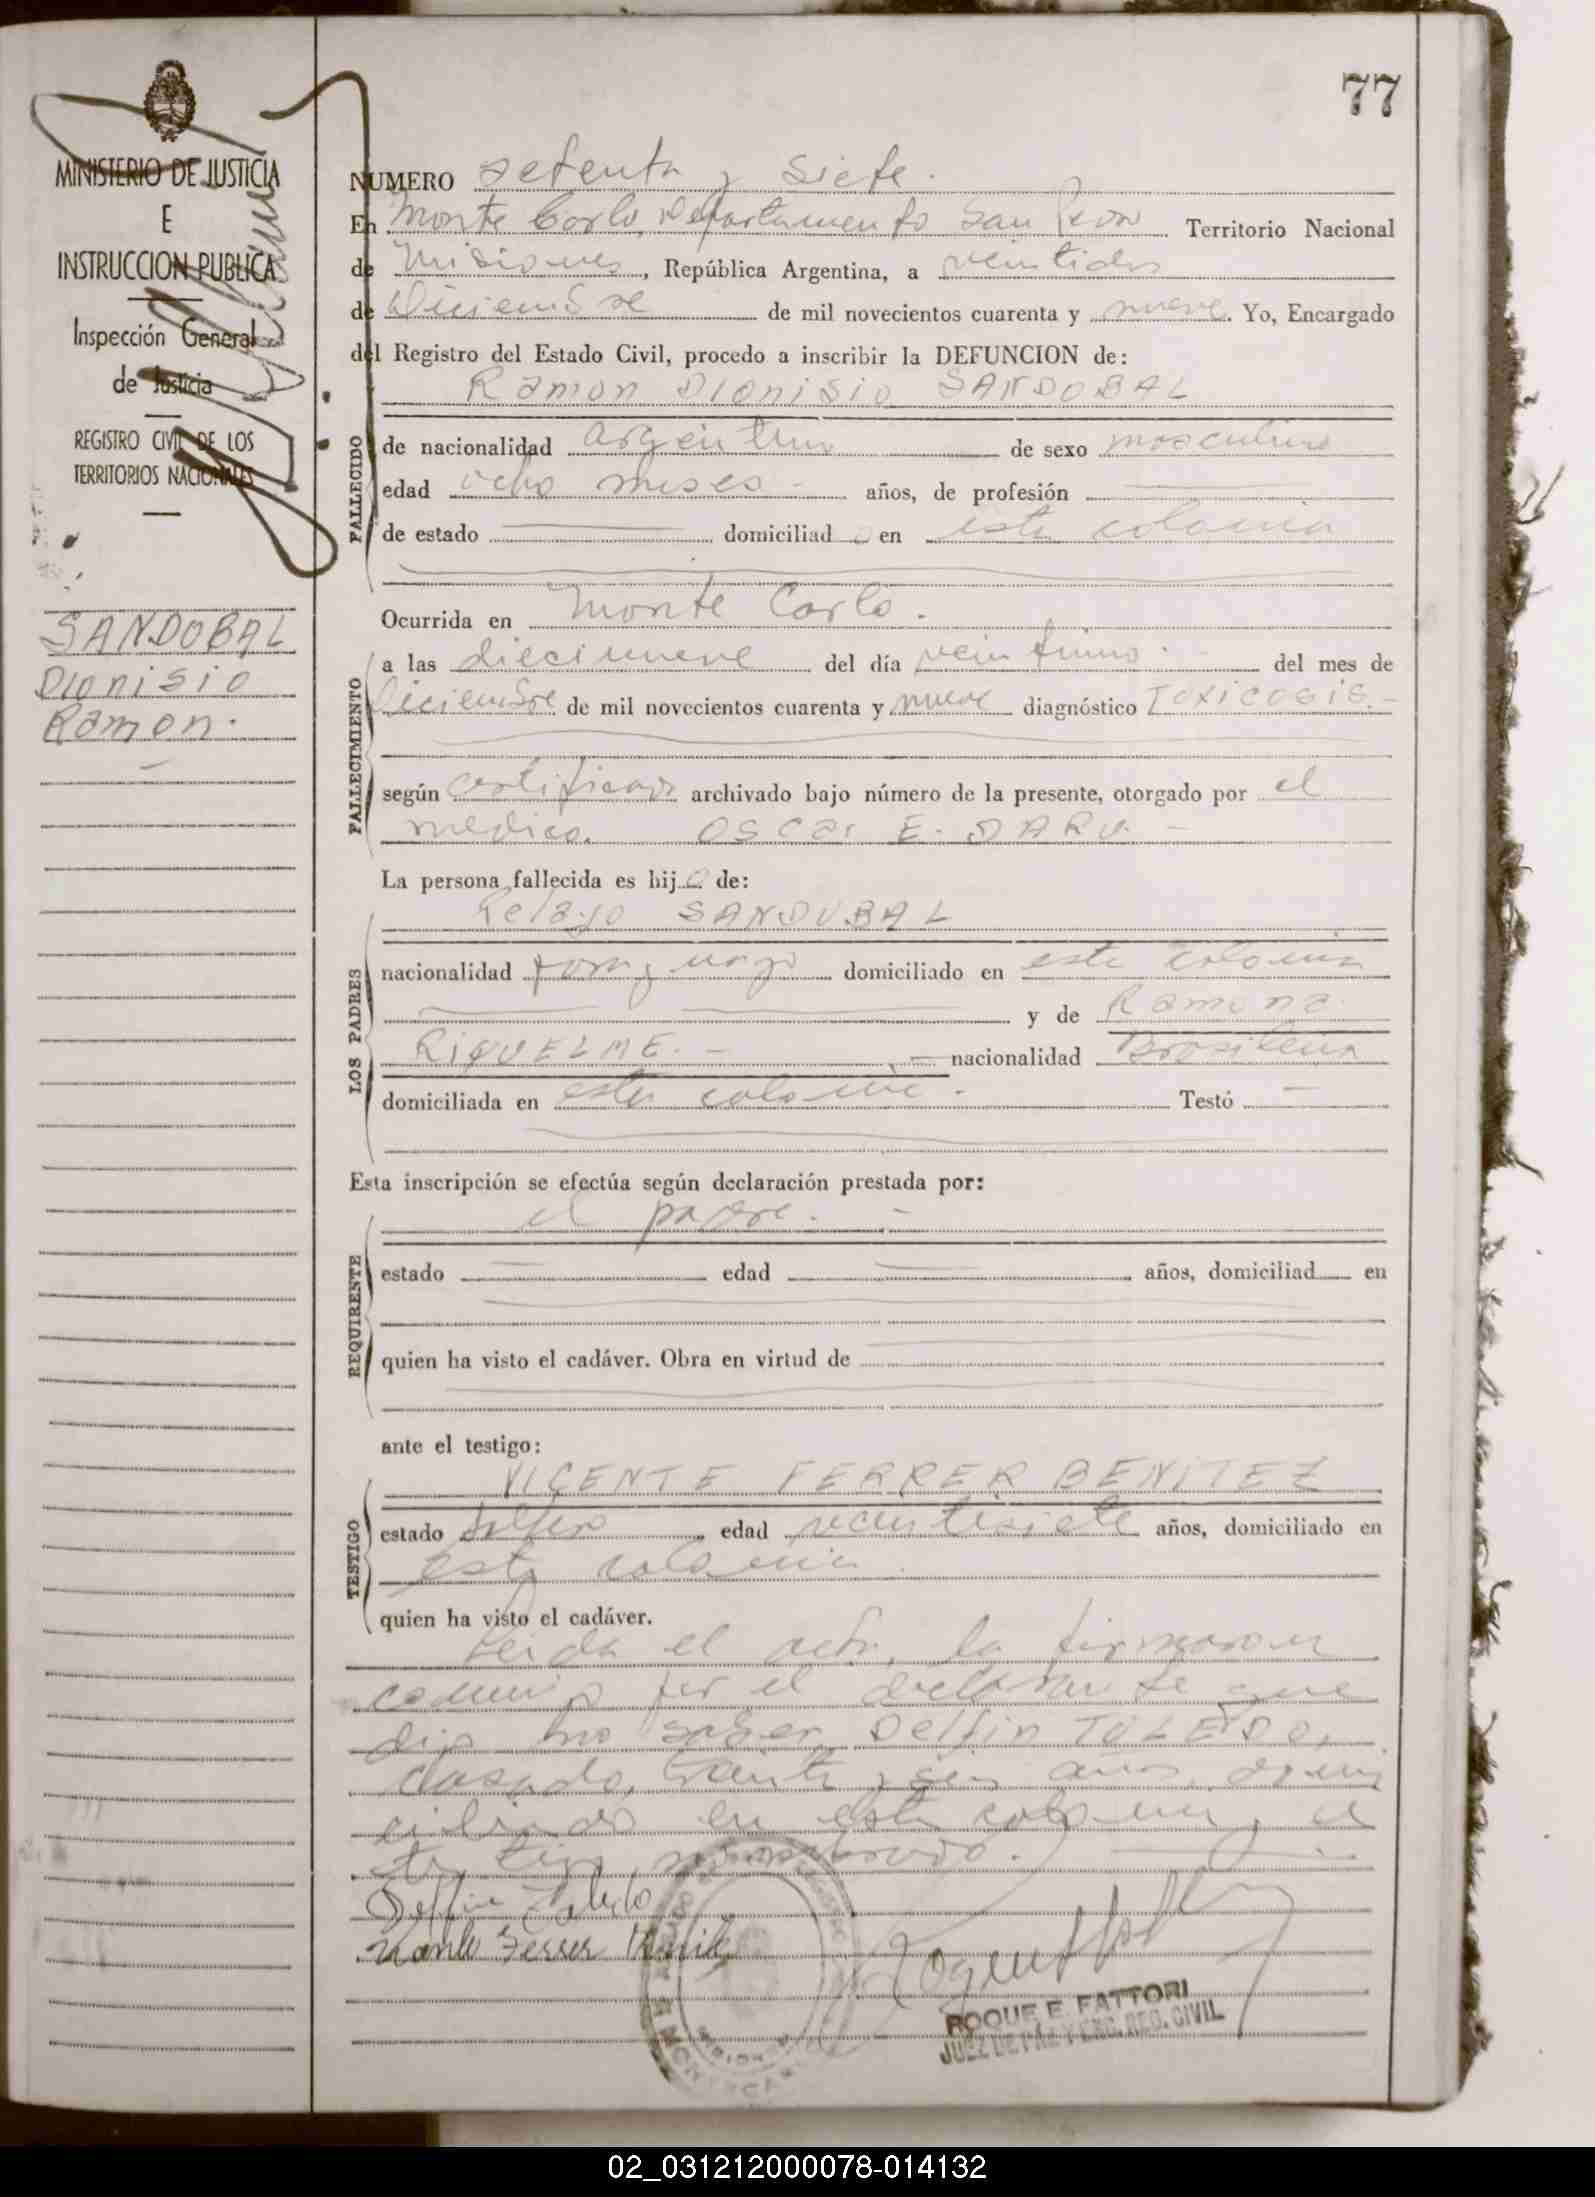 77
MINISTERIO DE JUSTICIA
E
INSTRUCCION PUBLICA
Inspección General
de Justicia
REGISTRO CIVIL DE LOS
TERRITORIOS NACIONALES
SANDOBAL
Dionisio
Ramon.
NUMERO setenta y siete.
En Monte Carlo, Departamento San Territorio Nacional
de Misiones, República Argentina, a veintidos
de Diciembre de mil novecientos cuarenta y nueve. Yo, Encargado
del Registro del Estado Civil, procedo a inscribir la DEFUNCION de:
Ramon Dionisio SANDOBAL
FALLECIDO
de nacionalidad argentino de sexo masculino
edad ocho meses - años, de profesión
de estado domiciliado en esta colonia
Ocurrida en Monte Carlo.
FALLECIMIENTO
a las diecinueve del día veintiuno. del mes de
Diciembre de mil novecientos cuarenta y nueve diagnóstico Toxicosis.-
según certificado archivado bajo número de la presente, otorgado por el
medico. Oscar E. DARU. -
La persona fallecida es hijo de:
LOS PADRES
SANDOBAL
nacionalidad paraguayo domiciliado en esta colonia
y de Ramona
RIQUELME. - nacionalidad Brasileña
domiciliada en esta colonia. Testó
Esta inscripción se efectúa según declaración prestada por:
el padre. -
REQUIRENTE
estado edad años, domiciliad en
quien ha visto el cadáver. Obra en virtud de
ante el testigo:
TESTIGO
VICENTE FERRER BENITEZ
estado soltero edad veintisiete años, domiciliado en
esta colonia.
quien ha visto el cadáver.
Leida el acta, la firmaron
conmigo por el declarante que
dijo no saber, Delfin TOLEDO,
casado, treinta y seis años, domi
ciliado en esta colonia, y el
testigo nombrado.
Delfin Toledo
Ferrer Benitez
ROQUE E. FATTORI
JUEZ DE PAZ Y ENC. REG. CIVIL
02_031212000078-014132